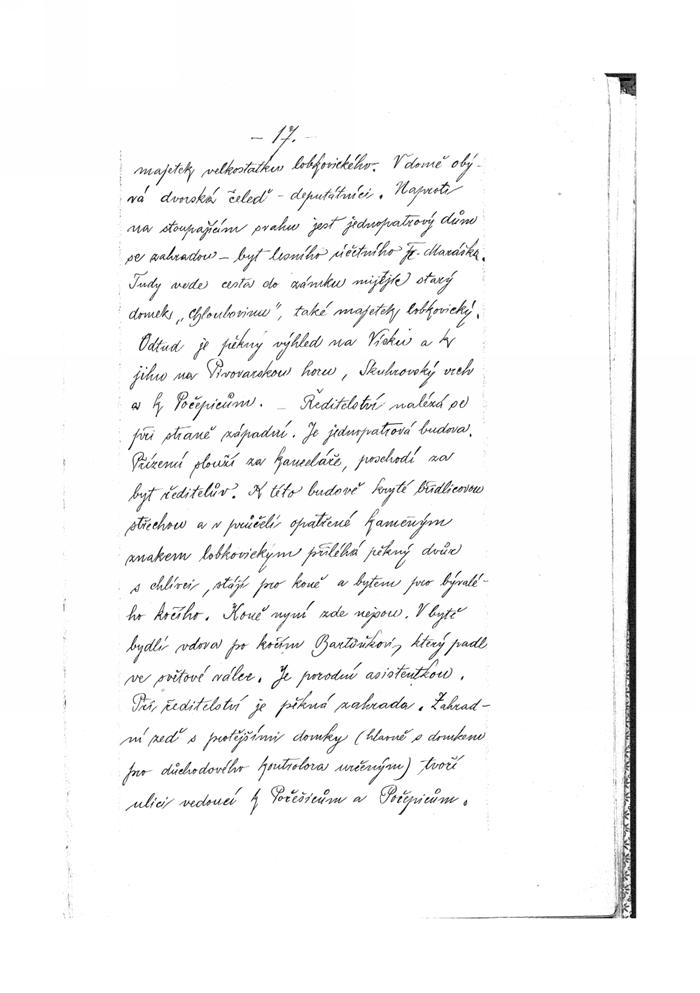 – 17. –
majetek velkostatku lobkovického. V domě obý-
vá dvorská čeleď – deputátníci. Naproti
na stoupajícím svahu jest jednopatrový dům
se zahradou – byt lesního účetního Fr. Maráška.
Tudy vede cesta do zámku míjejíc starý
domek „Chloubovinu", také majetek lobkovický.
Odtud je pěkný výhled na Vísku a k
jihu na Pivovarskou horu, Skuhrovský vrch
a k Počepicům. – Ředitelství nalézá se
při straně západní. Je jednopatrová budova.
Přízemí slouží za kanceláře, poschodí za
byt ředitelův. K této budově kryté břidlicovou
střechou a v průčelí opatřené kamenným
znakem lobkovickým přiléhá pěkný dvůr
s chlívci, stájí pro koně a bytem pro bývalé-
ho kočího. Koně nyní zde nejsou. V bytě
bydlí vdova po kočím Bartůňkovi, který padl
ve světové válce. Je porodní asistentkou.
Při ředitelství je pěkná zahrada. Zahrad-
ní zeď s protějšími domky (hlavně s domkem
pro důchodového kontrolora určeným) tvoří
ulici vedoucí k Počešicům a Počepicům.